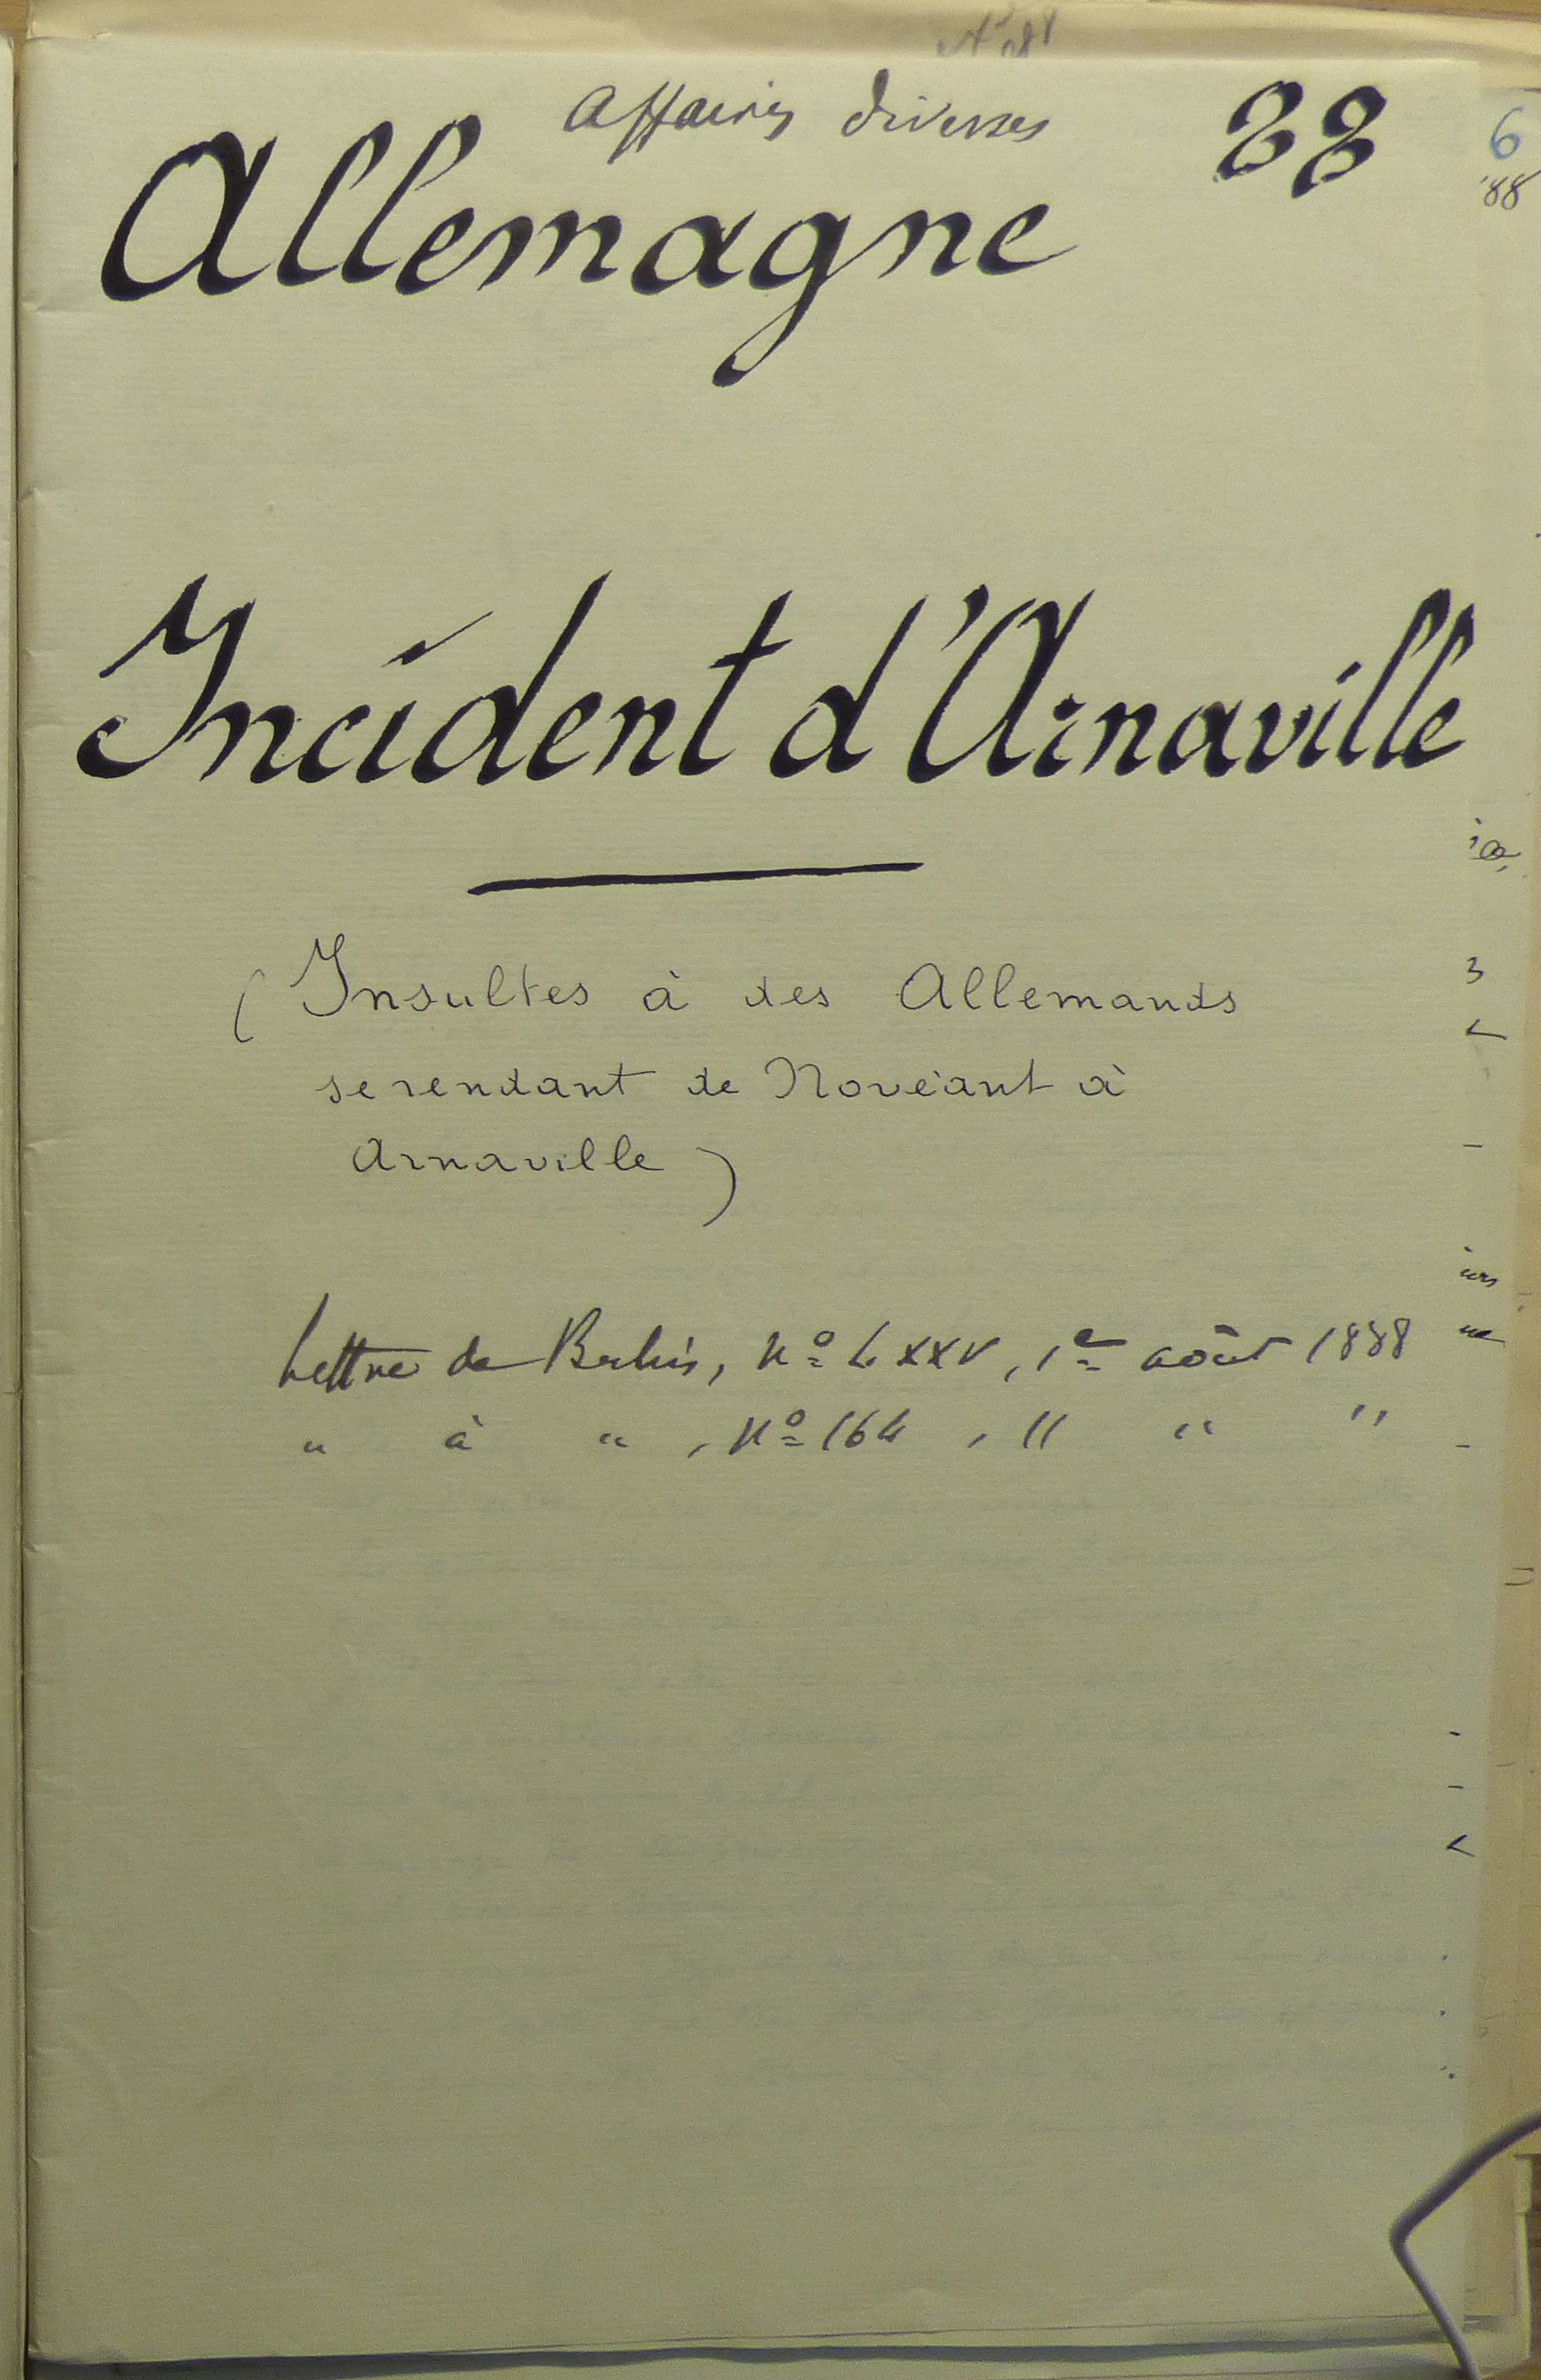 Affaires diverses
88
6
'88
Allemagne
Incident d'Arnaville
(Insultes à des Allemands
se rendant de Novéant à
Arnaville)
Lettre de Berlin, No LXXV, 1er août 1888
" à " , No 164 , 11 " "